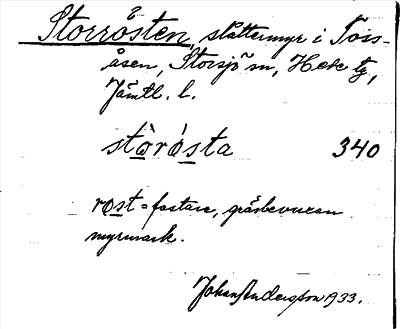 Storrösten, slåttermyr i Tóss-
åsen, Storsjö sn, Hede tg,
Jämtl. l.
stòrósta 340
rost = fastare, gräsbevuxen
myrmark.
Johan Andersson 1933.